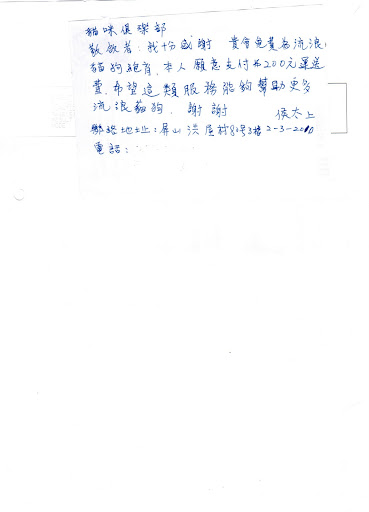 貓咪俱樂部
敬啟者：我十份感謝 貴會免費為流浪
貓狗絕育，本人願意支付$200元運送
費，希望這類服務能夠幫助更多
流浪貓狗，謝謝 侯太上
聯絡地址：屏山洪屋村81號3樓 2-3-2010
電話：